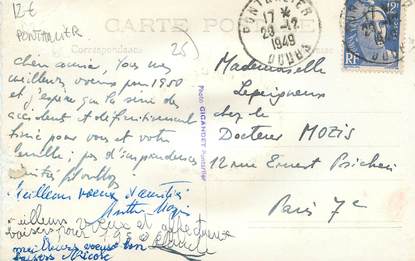 12€
PONTARLIER
CARTE POSTALE
Correspondance
25
PONTARLIER
17 H
29-12
1949
DOUBS
12F
RF
Chère amie, tous mes
meilleurs voeux pour 1950
et j'espère que la série de
accident et de
pour vous et votre
famille; pas d'imprudences
Meilleurs voeux d'amitiés
Meilleurs voeux et affectueux
baisers pour 1950
meilleurs voeux bon
baisers Nicole
Photo GIGANDET Pontarlier
Mademoiselle
chez le
Docteur
12 rue Ernest Psichari
Paris 7e